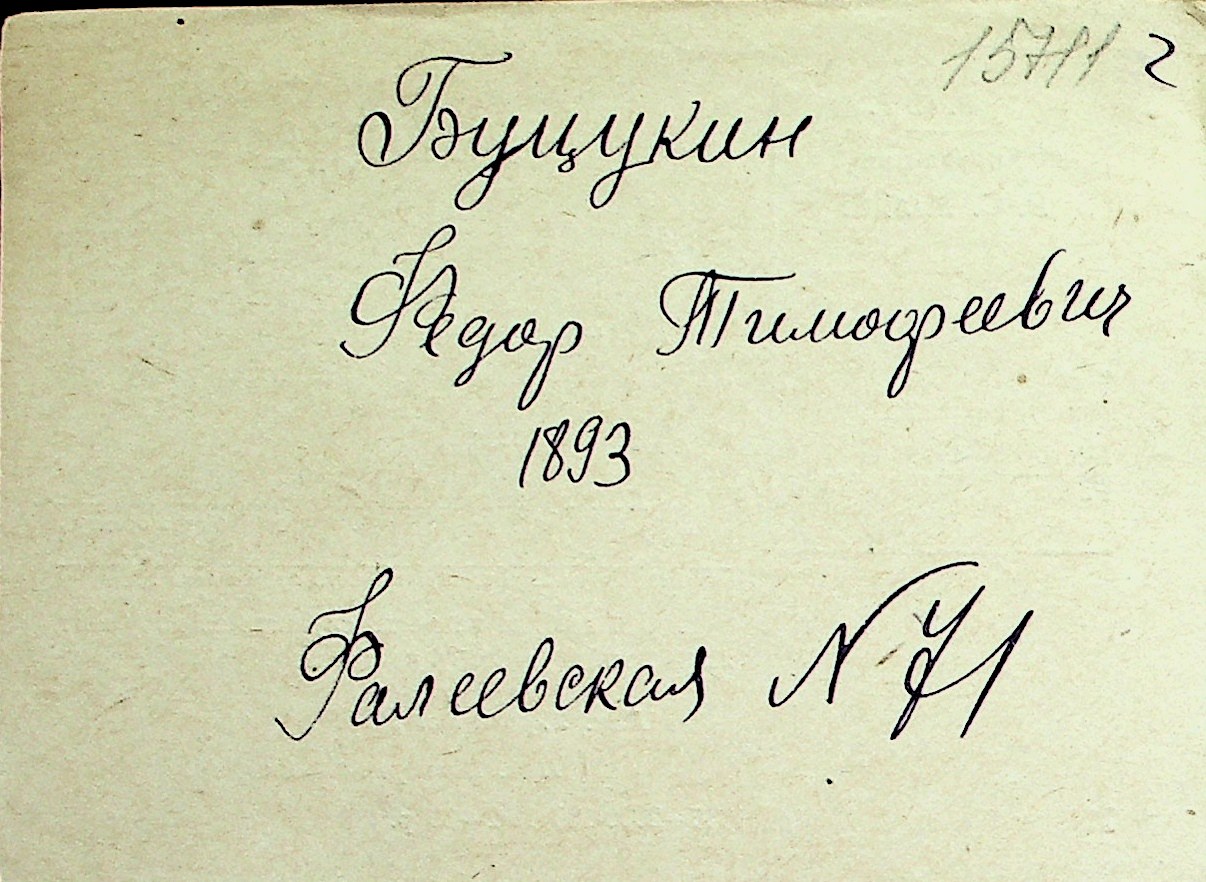 15711 2
Буцукин
Федор Тимофеевич
1893
Фалеевская N 71